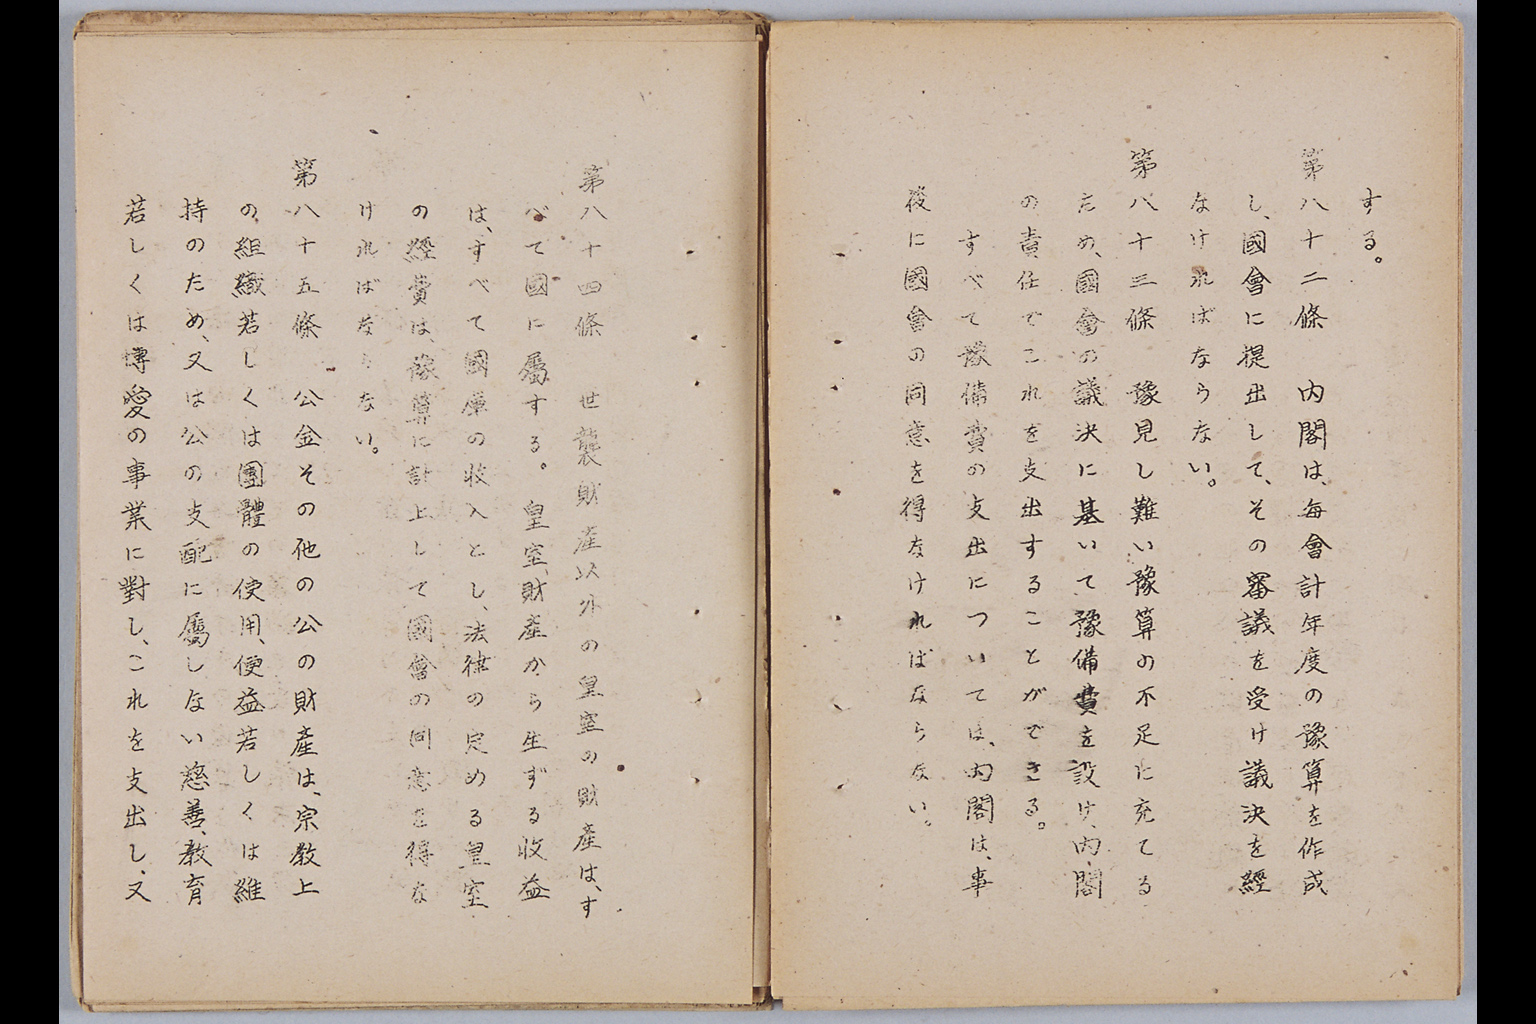 する。
第八十二條　内閣は、毎會計年度の豫算を作成
し、國會に提出して、その審議を受け議決を經
なければならない。
第八十三條　豫見し難い豫算の不足に充てる
ため、國會の議決に基いて豫備費を設け、内閣
の責任でこれを支出することができる。
すべて豫備費の支出については、内閣は、事
後に國會の同意を得なければならない。
第八十四條　世襲財産以外の皇室の財産は、す
べて國に屬する。皇室財産から生ずる收益
は、すべて國庫の收入とし、法律の定める皇室
の經費は、豫算に計上して國會の同意を得な
ければならない。
第八十五條　公金その他の公の財産は、宗教上
の組織若しくは團體の使用、便益若しくは維
持のため、又は公の支配に屬しない慈善、教育
若しくは博愛の事業に對し、これを支出し、又